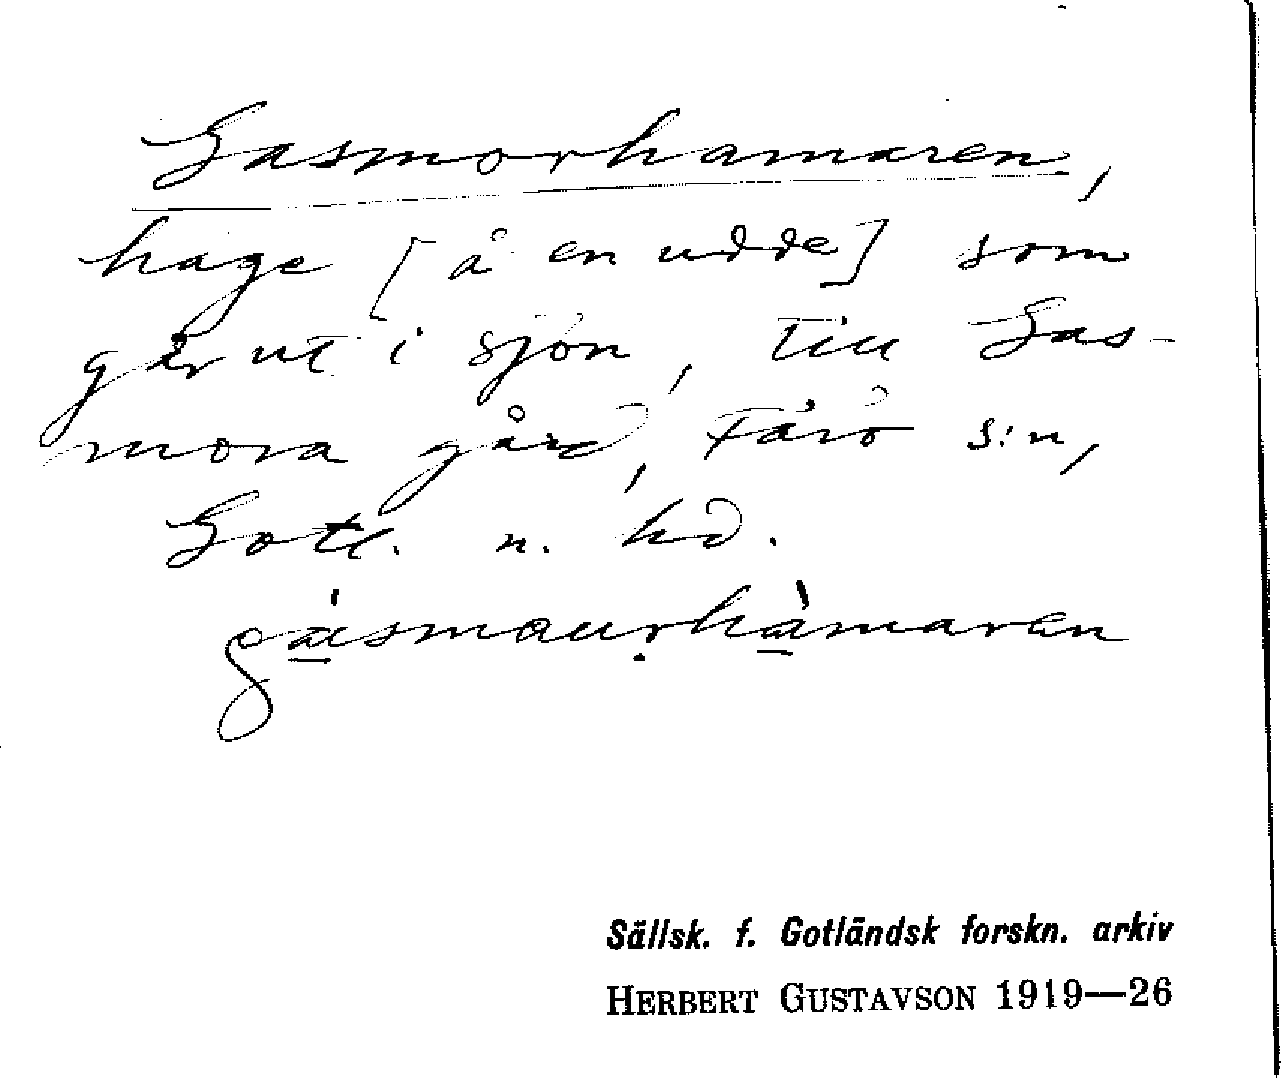 Gasmorhamaren,
hage [å en udde] som
går ut i sjön, till Gas-
mora gård, Fårö s:n,
Gotl. n. hd.
gásmau̩rhàmaren
Sällsk. f. Gotländsk forskn. arkiv
HERBERT GUSTAVSON 1919—26